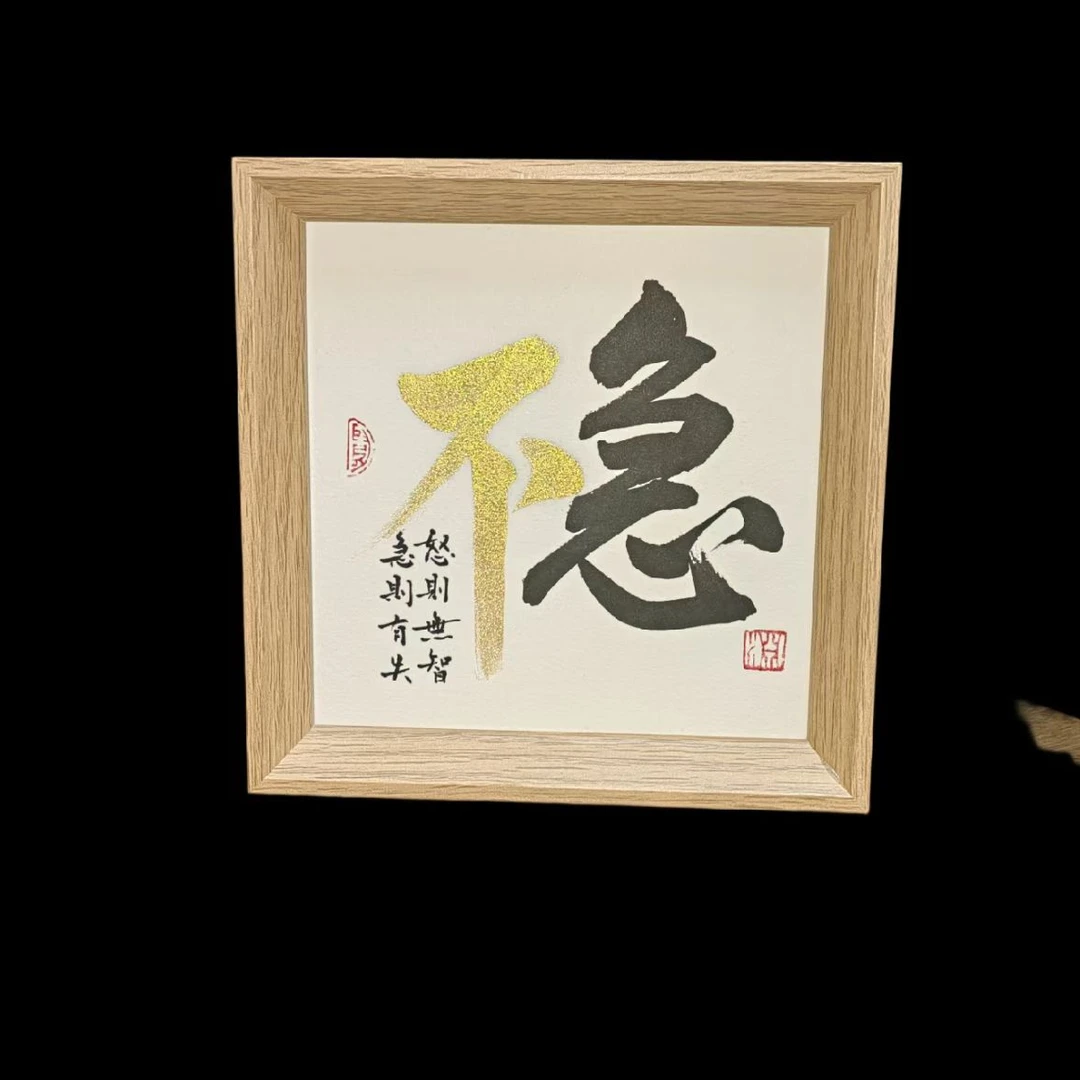 不急
怒則無智
急則有失